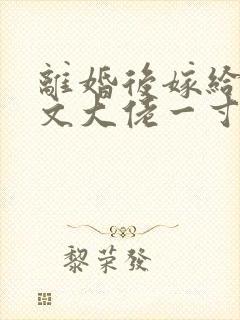 離婚後嫁給
文大佬一寸
黎荣發